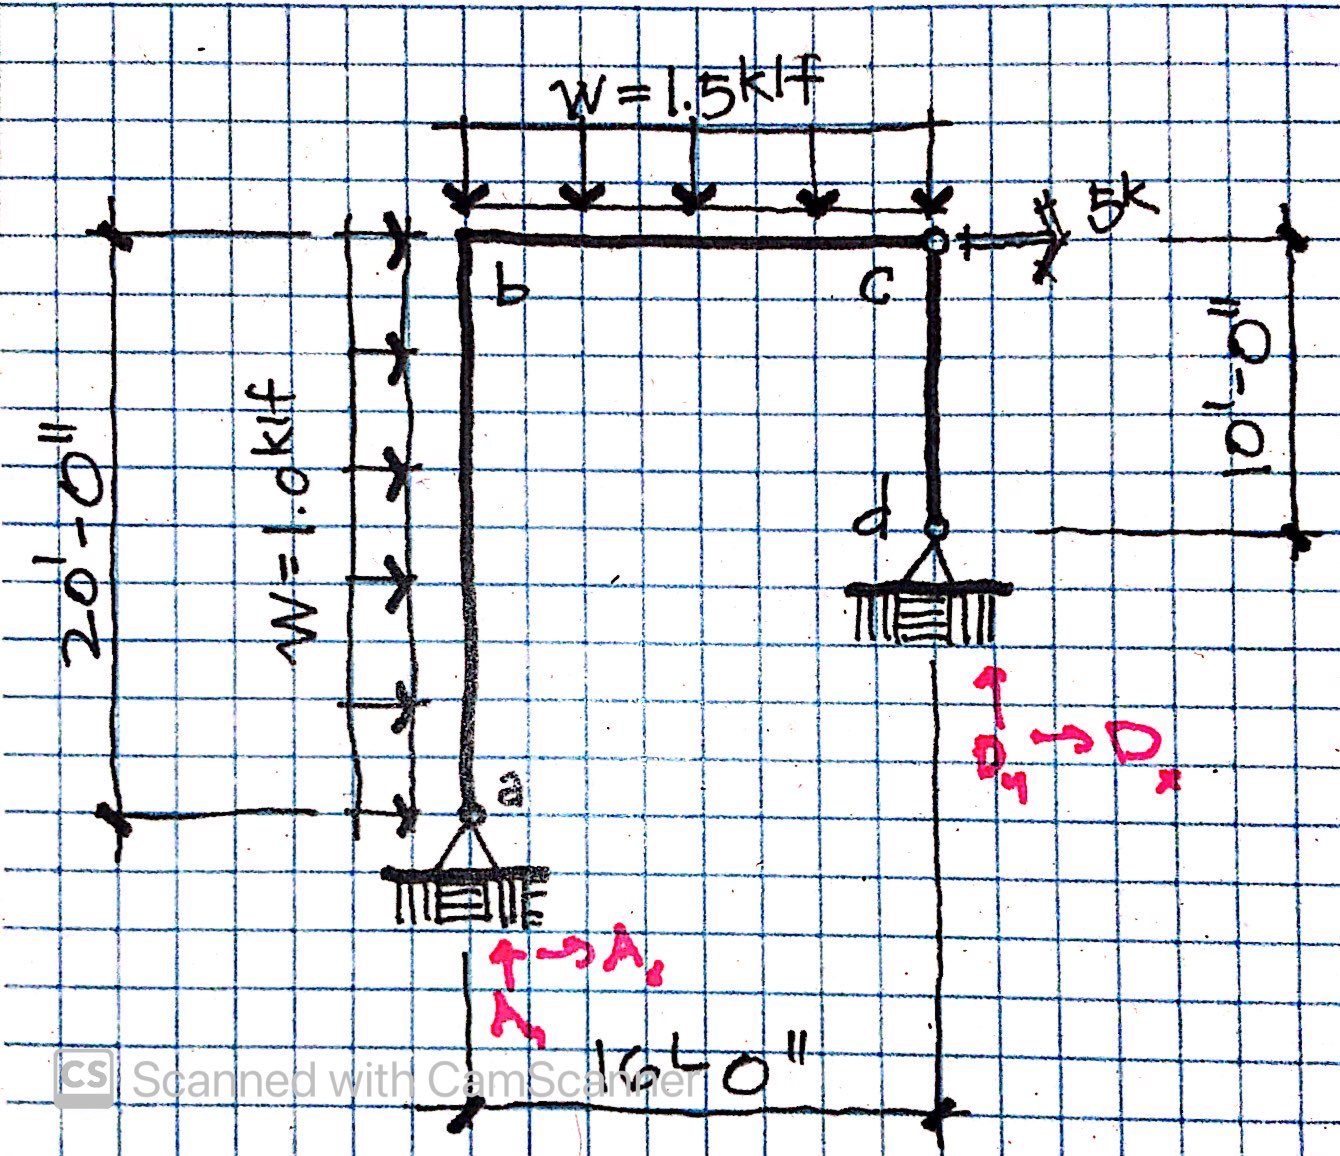 W=1.5klf
5k
b
c
10'-0"
20'-0"
W=1.0klf
d
a
Dy
Dx
Ay
16'-0"
CS Scanned with CamScanner